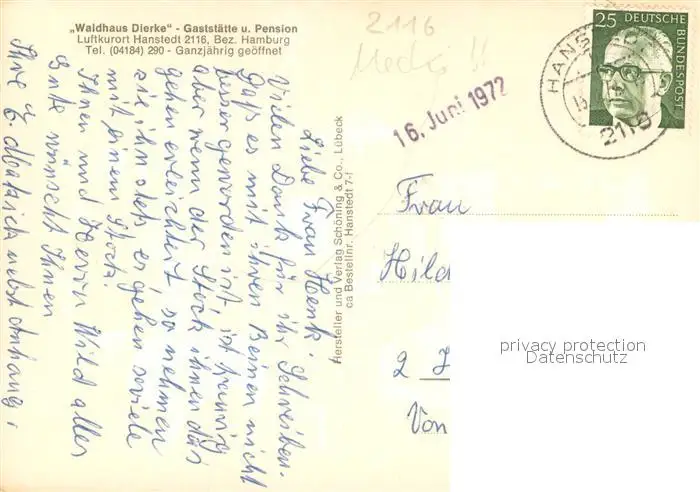 „Waldhaus Dierke“ - Gaststätte u. Pension
Luftkurort Hanstedt 2116, Bez. Hamburg
Tel. (04184) 290 - Ganzjährig geöffnet
2116
16. Juni 1972
25 DEUTSCHE
BUNDESPOST
HANS
2116
Liebe Frau Henk.
Vielen Dank für ihr Schreiben.
Daß es mit ihren Beinen nicht
besser geworden ist, ist traurig
aber wenn der Stock ihnen das
gehen erleichtert, so nehmen
sie ihn stets, es gehen so viele
mit einem Stock.
Ihnen und Herrn Wild alles
Gute wünscht Ihnen
Ihre E. nebst Anhang.
Hersteller und Verlag Schöning & Co., Lübeck
ca Bestellnr. Hanstedt 7-f
Frau
Hild
2
Von
privacy protection
Datenschutz